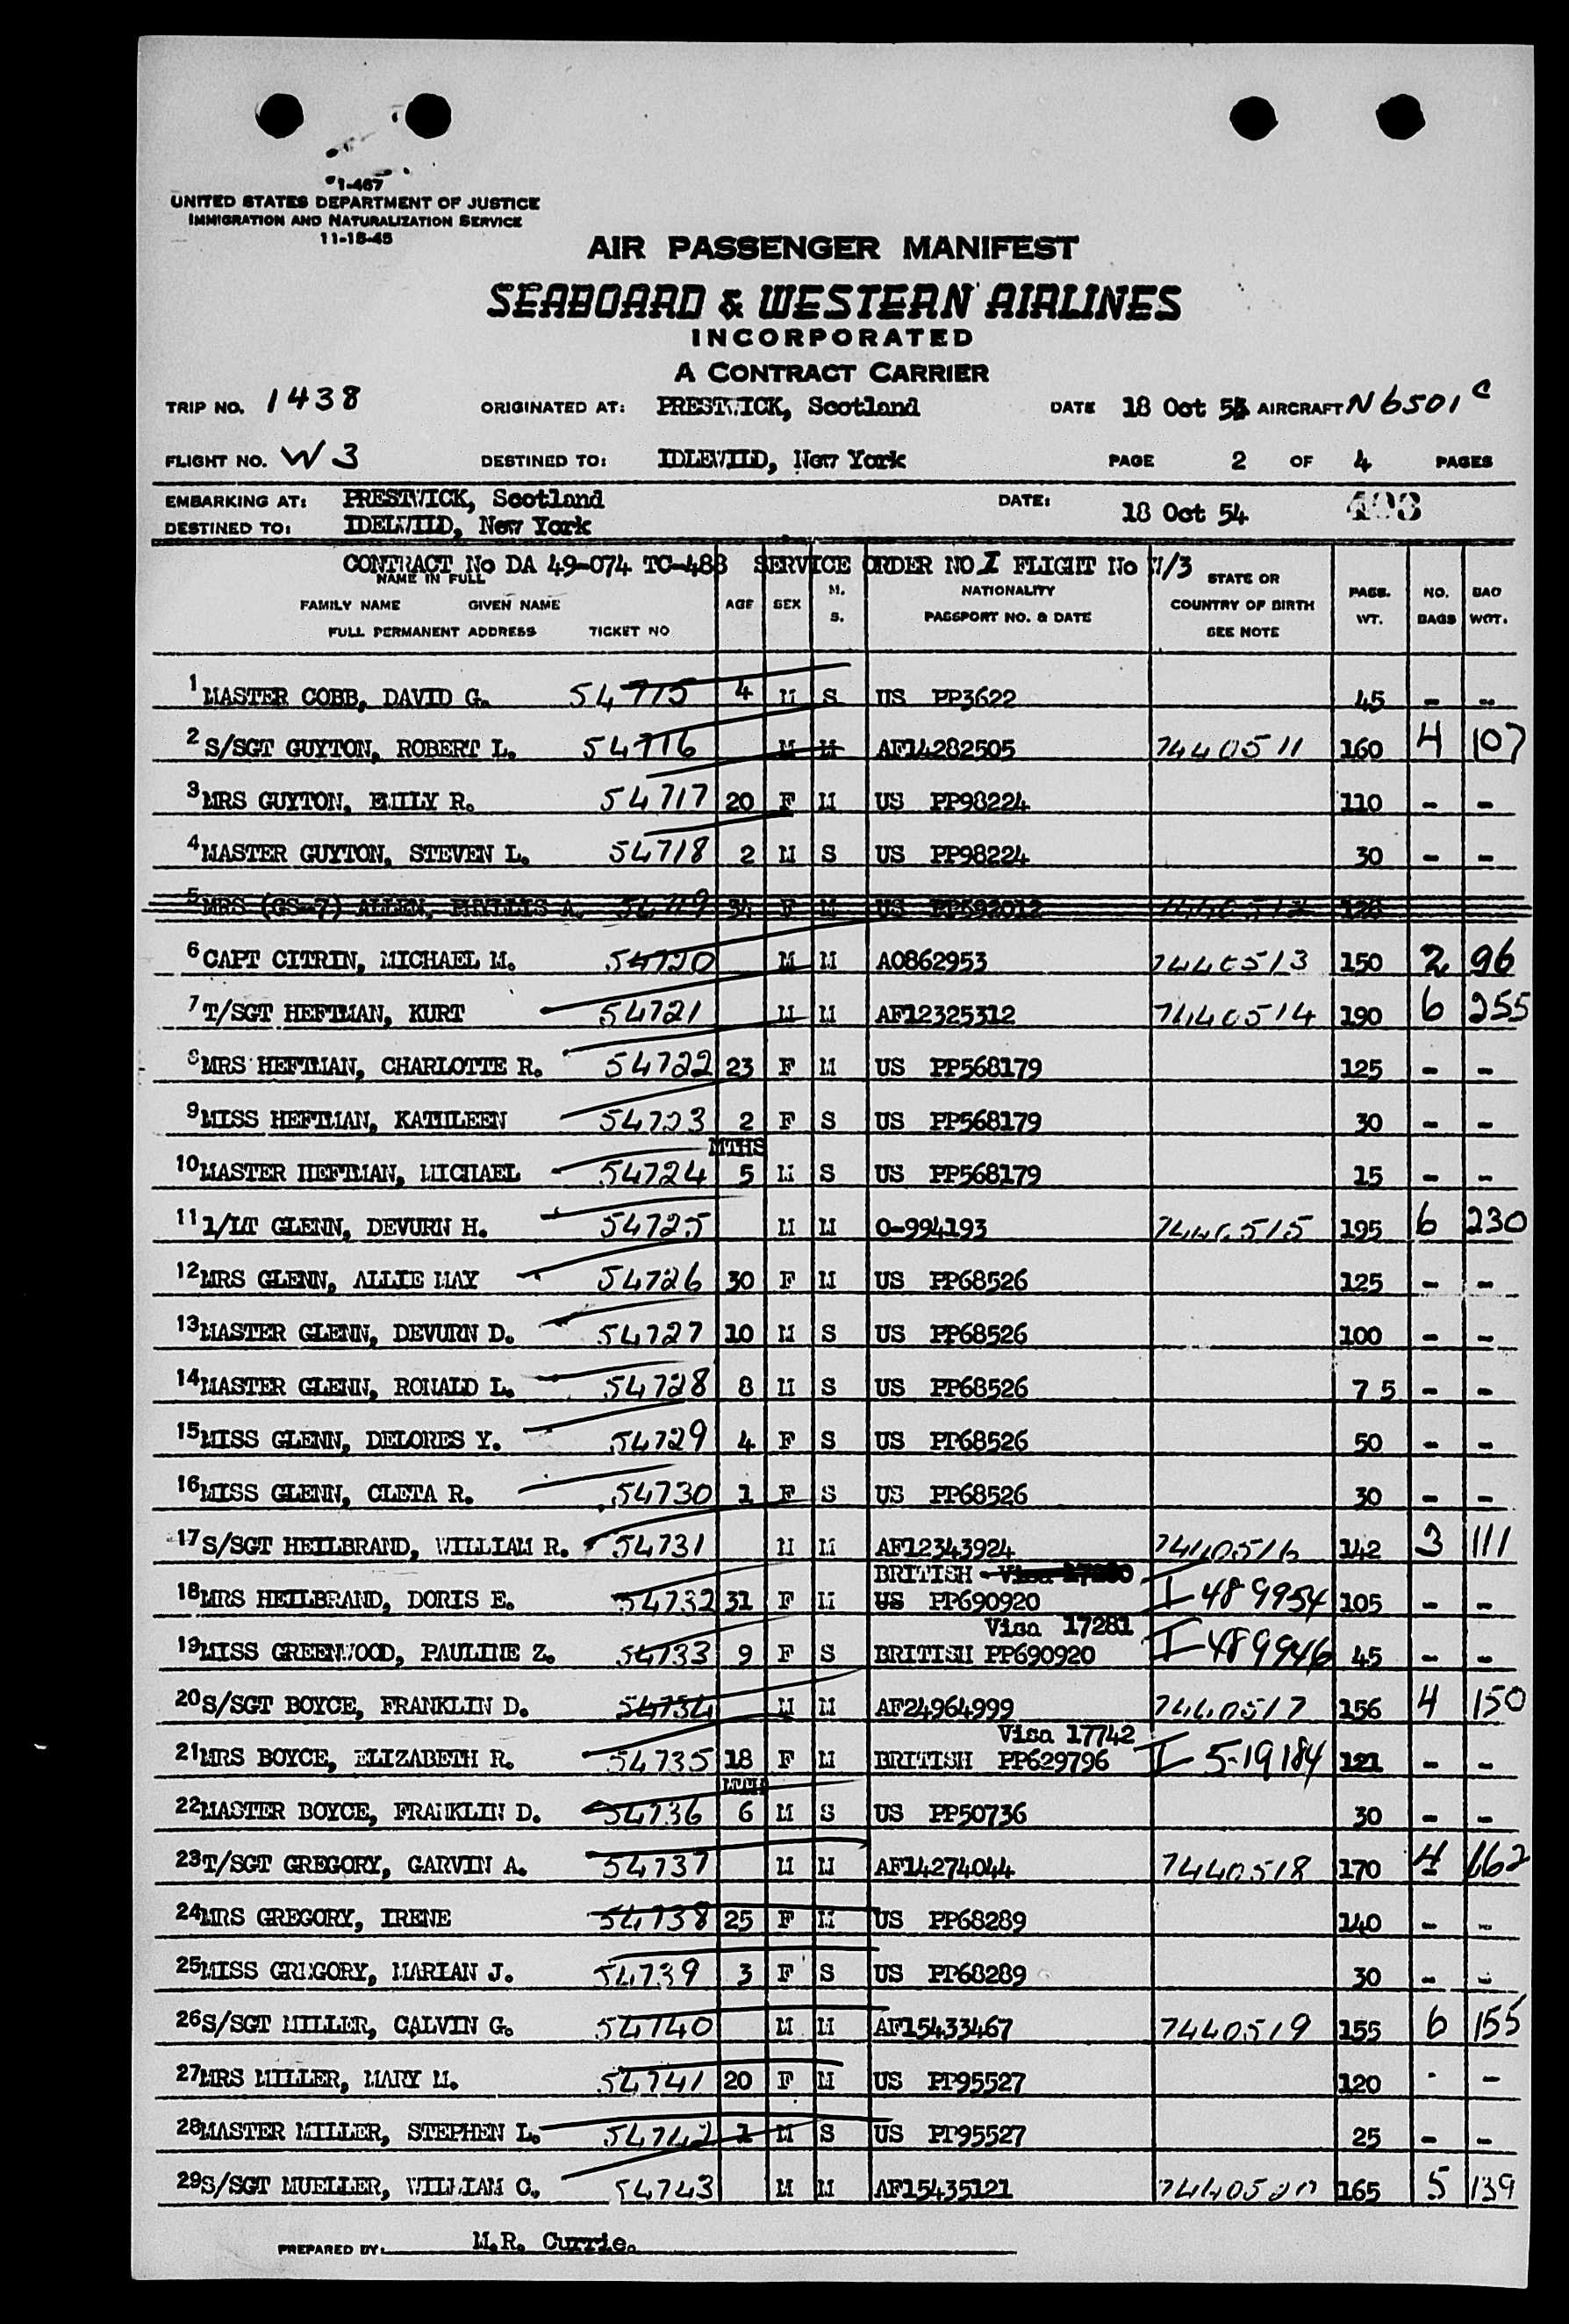 1-467
UNITED STATES DEPARTMENT OF JUSTICE
IMMIGRATION AND NATURALIZATION SERVICE
11-15-45
AIR PASSENGER MANIFEST
SEABOARD & WESTERN AIRLINES
INCORPORATED
A CONTRACT CARRIER
TRIP NO. 1438 ORIGINATED AT: PRESTWICK, Scotland DATE 18 Oct 54 AIRCRAFT N6501C
FLIGHT NO. W3 DESTINED TO: IDLEWILD, New York PAGE 2 OF 4 PAGES
EMBARKING AT: PRESTWICK, Scotland DATE: 18 Oct 54
DESTINED TO: IDELWILD, New York
CONTRACT No DA 49-074 TC-488 SERVICE ORDER NO I FLIGHT No W/3
NAME IN FULL
FAMILY NAME GIVEN NAME
FULL PERMANENT ADDRESS TICKET NO AGE SEX M. S. NATIONALITY PASSPORT NO. & DATE STATE OR COUNTRY OF BIRTH SEE NOTE PASS. WT. NO. BAGS BAG WGT.
1 MASTER COBB, DAVID G. 54715 4 M S US PP3622 45 - -
2 S/SGT GUYTON, ROBERT L. 54716 M M AF14282505 7440511 160 4 107
3 MRS GUYTON, EMILY R. 54717 20 F M US PP98224 110 - -
4 MASTER GUYTON, STEVEN L. 54718 2 M S US PP98224 30 - -
5 MRS (GS-7) ALLEN, PHYLLIS A. 54719 34 F M US PP592012
6 CAPT CITRIN, MICHAEL M. 54720 M M AO862953 7440513 150 2 96
7 T/SGT HEFTMAN, KURT 54721 M M AF12325312 7440514 190 6 255
8 MRS HEFTMAN, CHARLOTTE R. 54722 23 F M US PP568179 125 - -
9 MISS HEFTMAN, KATHLEEN 54723 2 F S US PP568179 30 - -
10 MASTER HEFTMAN, MICHAEL 54724 MTHS 5 M S US PP568179 15 - -
11 1/LT GLENN, DEVURN H. 54725 M M O-994193 7440515 195 6 230
12 MRS GLENN, ALLIE MAY 54726 30 F M US PP68526 125 - -
13 MASTER GLENN, DEVURN D. 54727 10 M S US PP68526 100 - -
14 MASTER GLENN, RONALD L. 54728 8 M S US PP68526 75 - -
15 MISS GLENN, DELORES Y. 54729 4 F S US PP68526 50 - -
16 MISS GLENN, CLETA R. 54730 1 F S US PP68526 30 - -
17 S/SGT HEILBRAND, WILLIAM R. 54731 M M AF12343924 7440516 142 3 111
BRITISH Visa 17280
18 MRS HEILBRAND, DORIS E. 54732 31 F M US PP690920 I-489954 105 - -
Visa 17281
19 MISS GREENWOOD, PAULINE Z. 54733 9 F S BRITISH PP690920 I-489946 45 - -
20 S/SGT BOYCE, FRANKLIN D. 54734 M M AF24964999 7440517 156 4 150
Visa 17742
21 MRS BOYCE, ELIZABETH R. 54735 18 F M BRITISH PP629796 I-519184 121 - -
22 MASTER BOYCE, FRANKLIN D. 54736 MTH 6 M S US PP50736 30 - -
23 T/SGT GREGORY, GARVIN A. 54737 M M AF14274044 7440518 170 4 162
24 MRS GREGORY, IRENE 54738 25 F M US PP68289 140 - -
25 MISS GREGORY, MARIAN J. 54739 3 F S US PP68289 30 - -
26 S/SGT MILLER, CALVIN G. 54740 M M AF15433467 7440519 155 6 155
27 MRS MILLER, MARY M. 54741 20 F M US PP95527 120 - -
28 MASTER MILLER, STEPHEN L. 54742 1 M S US PP95527 25 - -
29 S/SGT MUELLER, WILLIAM C. 54743 M M AF15435121 7440520 165 5 139
PREPARED BY: M.R. Currie.